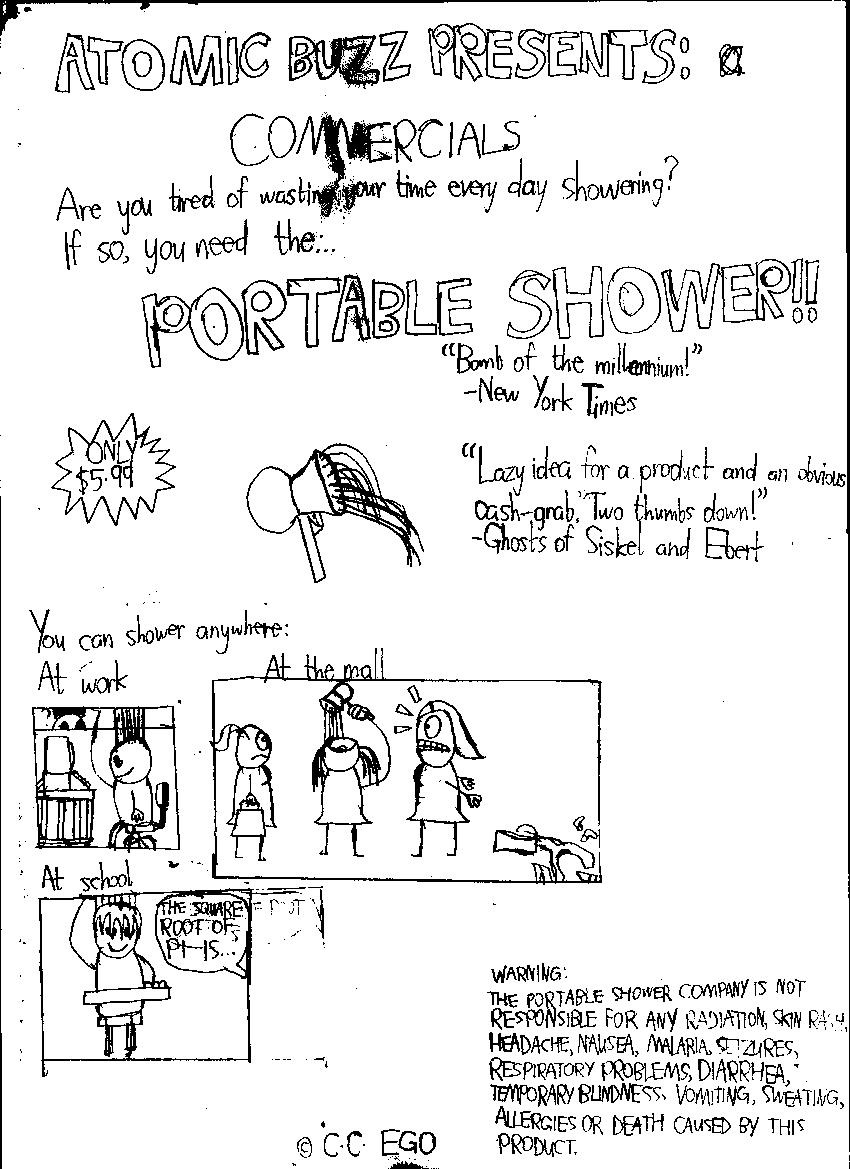 ATOMIC BUZZ PRESENTS:
COMMERCIALS
Are you tired of wasting your time every day showering?
If so, you need the:..
PORTABLE SHOWER!!
"Bomb of the millennium!"
-New York Times
ONLY
$5.99
"Lazy idea for a product and an obvious
cash-grab." Two thumbs down!"
-Ghosts of Siskel and Ebert
You can shower anywhere:
At work
At the mall
At school
THE SQUARE
ROOT OF
PI IS...
WARNING:
THE PORTABLE SHOWER COMPANY IS NOT
RESPONSIBLE FOR ANY RADIATION, SKIN RASH,
HEADACHE, NAUSEA, MALARIA, SEIZURES,
RESPIRATORY PROBLEMS, DIARRHEA,
TEMPORARY BLINDNESS, VOMITING, SWEATING,
ALLERGIES OR DEATH CAUSED BY THIS
PRODUCT.
© C.C. EGO